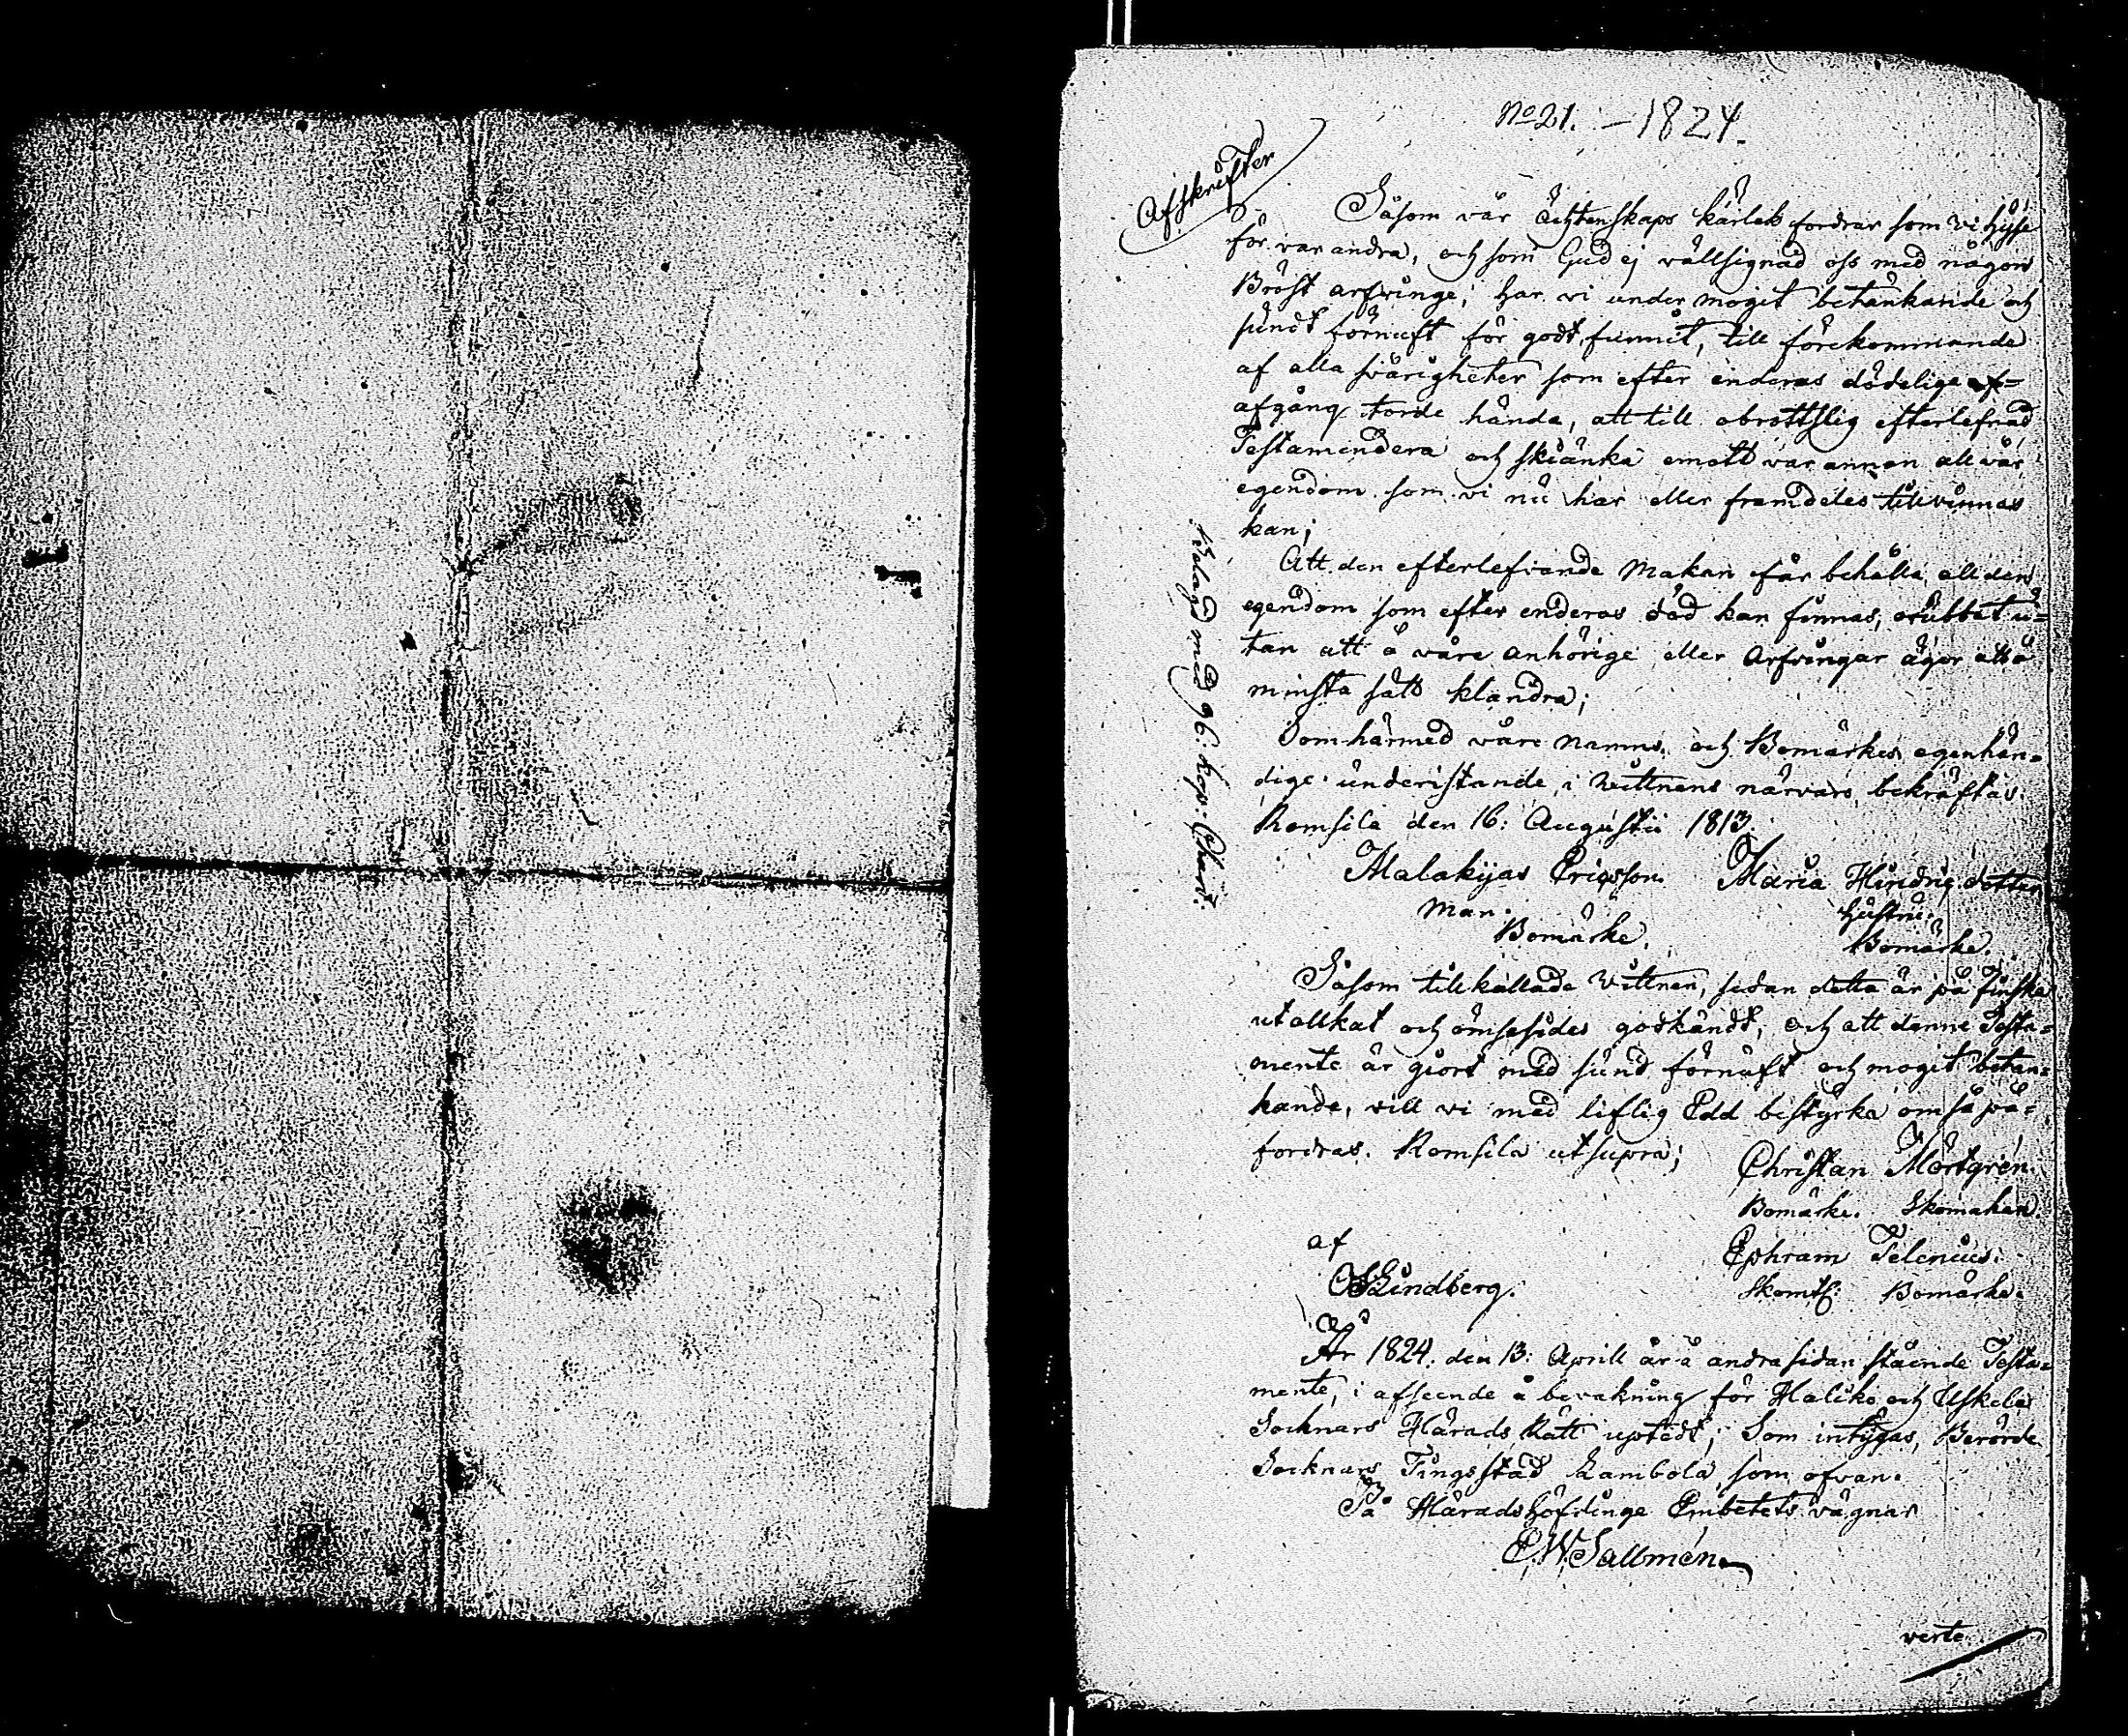 No 21. – 1824.
Afskrifter
Såsom vår ächtenskaps kärlek fordrar som vi hysse
för varandra, och som Gud ej vällsignad oss med någon
Bröst arfvinge; har vi under moget betänkande och
sundt förnuft för godt funnit, till förekommande
af alla svårigheter som efter enderas dödelige af=
afgång torde hända, att till obrottslig efterlefnad
Testamendera och skiänka emott varannan all vår
egendom som vi nu har eller framdeles tillvinnas
kan;
Att den efterlefvande Makan får behålla all den
egendom som efter enderas död kan finnas, orubbat u=
tan att å våre anhörige eller Arfvingar äger att å
minsta sätt klandra;
Som härmed våre namns och Bomärkes egenhän=
dige understande, i Vittnens närvaro, bekräftas.
Romsila den 16: Augusti 1813.
Malakyas Ericsson. Maria Hindrics dotter
Man. hustru.
Bomärke. Bomärke.
Såsom tillkallade Vittnen, sedan detta är på Finska
utollkat och ömsesides godkändt, och att denne Testa=
mente är giort med sund förnuft och moget betän=
kande, vill vi med liflig Edd bestyrka om så på=
fordras. Romsila ut supra;
Christan Mörtgrén.
Bomärke. Skomakare.
af Ephram Telenius.
Lindberg. Skomk: Bomärke.
År 1824. den 13: Aprill är å andra sidan stående Testa=
mente, i afseende å bevakning för Haliko och Uskela
Socknars Härads Rätt uptedt; Som intygas, Berörde
Socknars Tingsstad Lambola som ofvan.
På Häradshöfdinge Embetets vägnar
E.W. Sallmén
verte.
Belagd med 96: kop. Chart: